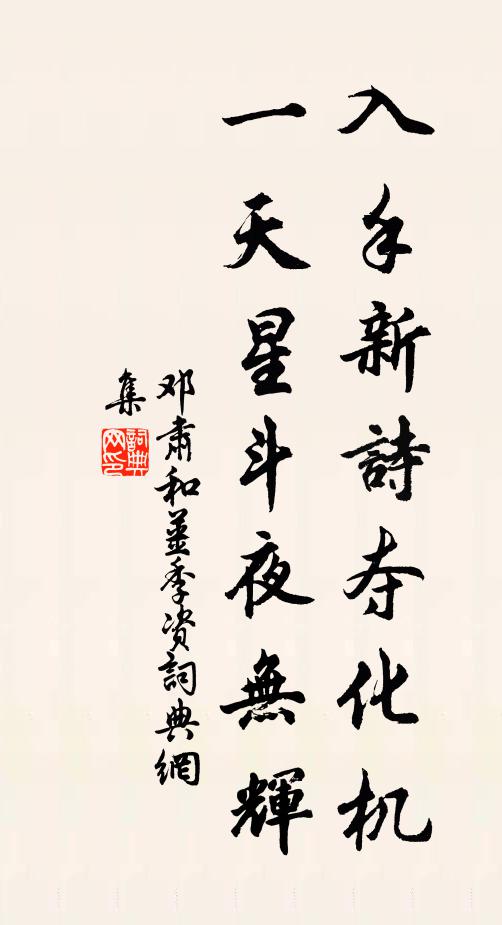 入手新詩夺化机
一天星斗夜無輝
邓肅和葉季资詞典網
集
詞典
网印